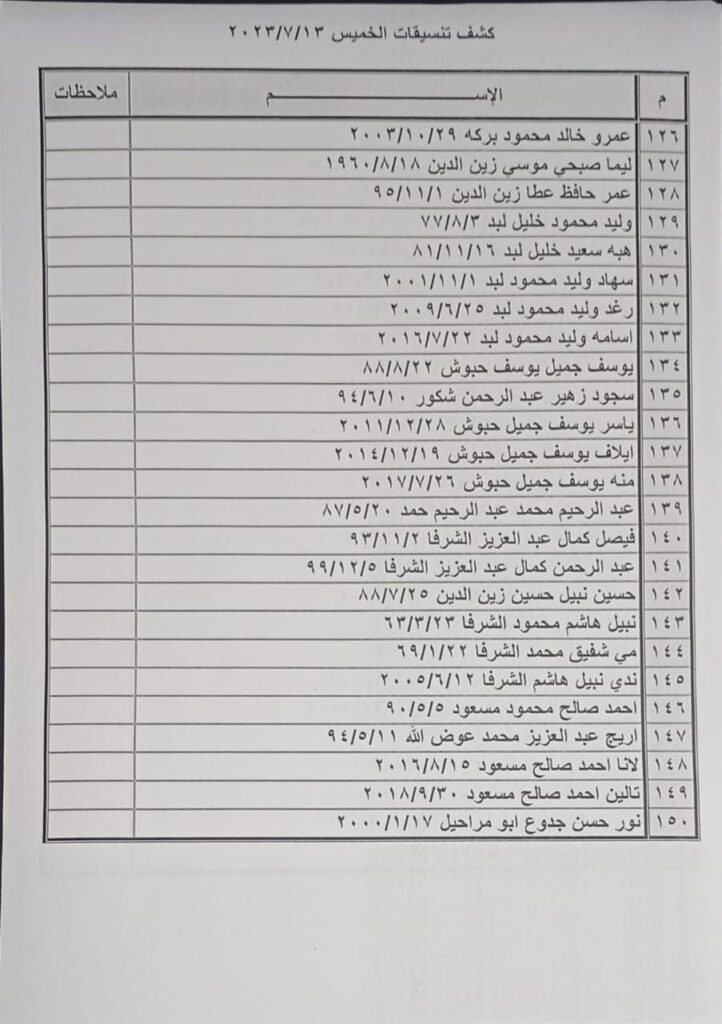 كشف تنسيقات الخميس ٢٠٢٣/٧/١٣
م الإســـــــــــــــــم ملاحظات
١٢٦ عمرو خالد محمود بركه ٢٠٠٣/١٠/٢٩
١٢٧ ليما صبحي موسي زين الدين ١٩٦٠/٨/١٨
١٢٨ عمر حافظ عطا زين الدين ٩٥/١١/١
١٢٩ وليد محمود خليل لبد ٧٧/٨/٣
١٣٠ هبه سعيد خليل لبد ٨١/١١/١٦
١٣١ سهاد وليد محمود لبد ٢٠٠١/١١/١
١٣٢ رغد وليد محمود لبد ٢٠٠٩/٦/٢٥
١٣٣ اسامه وليد محمود لبد ٢٠١٦/٧/٢٢
١٣٤ يوسف جميل يوسف حبوش ٨٨/٨/٢٢
١٣٥ سجود زهير عبد الرحمن شكور ٩٤/٦/١٠
١٣٦ ياسر يوسف جميل حبوش ٢٠١١/١٢/٢٨
١٣٧ ايلاف يوسف جميل حبوش ٢٠١٤/١٢/١٩
١٣٨ منه يوسف جميل حبوش ٢٠١٧/٧/٢٦
١٣٩ عبد الرحيم محمد عبد الرحيم حمد ٨٧/٥/٢٠
١٤٠ فيصل كمال عبد العزيز الشرفا ٩٣/١١/٢
١٤١ عبد الرحمن كمال عبد العزيز الشرفا ٩٩/١٢/٥
١٤٢ حسين نبيل حسين زين الدين ٨٨/٧/٢٥
١٤٣ نبيل هاشم محمود الشرفا ٦٣/٣/٢٣
١٤٤ مي شفيق محمد الشرفا ٦٩/١/٢٢
١٤٥ ندي نبيل هاشم الشرفا ٢٠٠٥/٦/١٢
١٤٦ احمد صالح محمود مسعود ٩٠/٥/٥
١٤٧ اريج عبد العزيز محمد عوض الله ٩٤/٥/١١
١٤٨ لانا احمد صالح مسعود ٢٠١٦/٨/١٥
١٤٩ تالين احمد صالح مسعود ٢٠١٨/٩/٣٠
١٥٠ نور حسن جدوع ابو مراحيل ٢٠٠٠/١/١٧